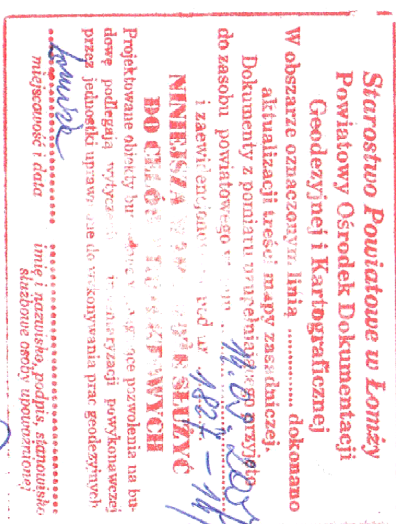 Starostwo Powiatowe w Łomży
Powiatowy Ośrodek Dokumentacji
Geodezyjnej i Kartograficznej
W obszarze oznaczonym linią .............. dokonano
aktualizacji treści mapy zasadniczej.
Dokumenty z pomiaru przyjęto
do zasobu powiatowego
i zaewidencjonowano pod nr 1807-14/
NINIEJSZA MOŻE SŁUŻYĆ
DO CELÓW PROJEKTOWYCH
Projektowane obiekty pozwolenia na bu-
dowę podlegają wytyczeniu inwentaryzacji powykonawczej
przez jednostki uprawnione do wykonywania prac geodezyjnych
Łomża
miejscowość i data imię i nazwisko, podpis, stanowisko
służbowe osoby upoważnionej